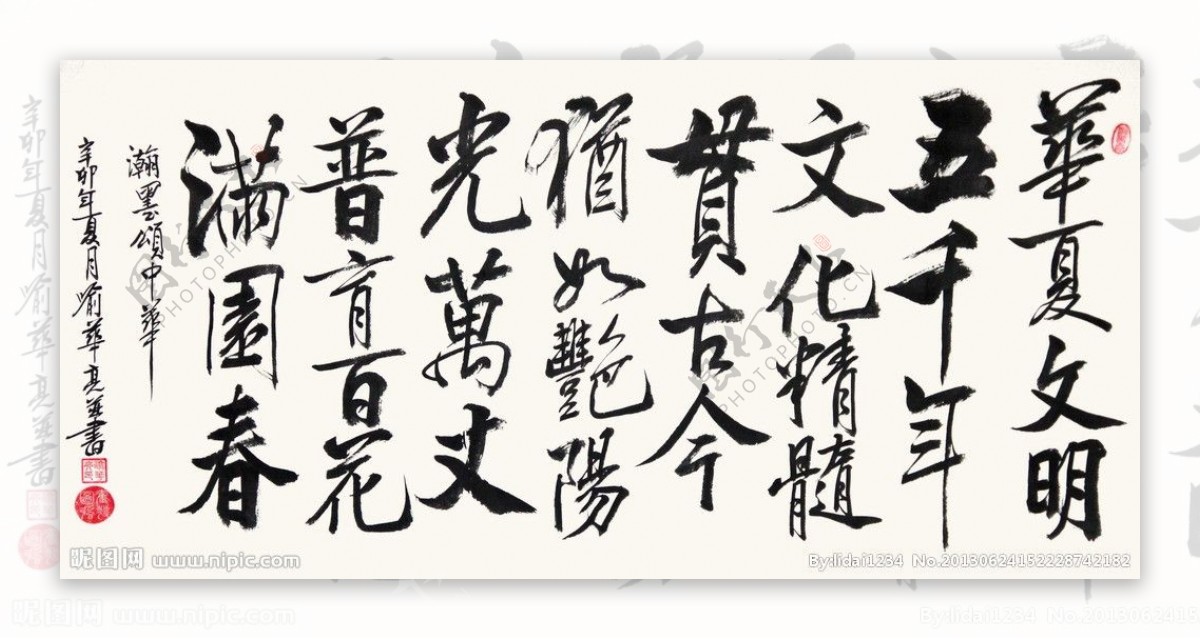 華夏文明
五千年
文化精髓
貫古今
猶如豔陽
光萬丈
普育百花
滿園春
瀚墨頌中華
辛卯年夏月喻華亮并書
昵图网 www.nipic.com
By:lidai1234 No.20130624152228742182